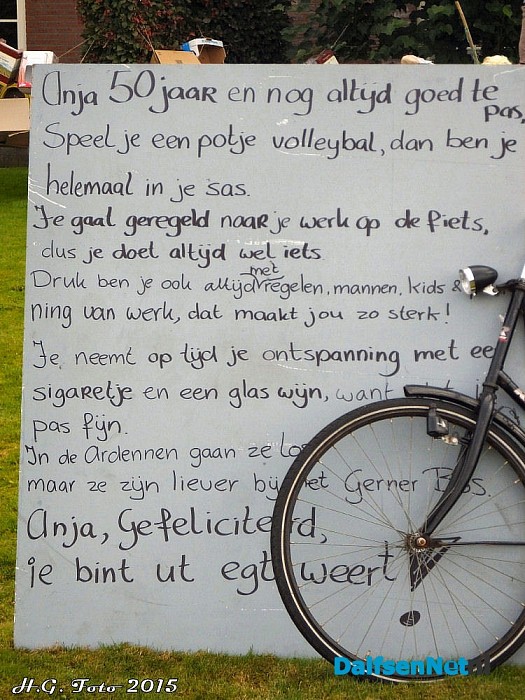 Anja 50 jaar en nog altijd goed te pas,
Speel je een potje volleybal, dan ben je
helemaal in je sas.
Je gaal geregeld naar je werk op de fiets,
dus je doet altijd wel iets
Druk ben je ook altijd met regelen, mannen, kids &
ning van werk, dat maakt jou zo sterk!
Je neemt op tijd je ontspanning met ee
sigaretje en een glas wijn, want
pas fijn.
In de Ardennen gaan ze los
maar ze zijn liever bij het Gerner Bos.
Anja, Gefeliciteerd,
je bint ut egt weert!
H.G. Foto 2015
DalfsenNet.nl